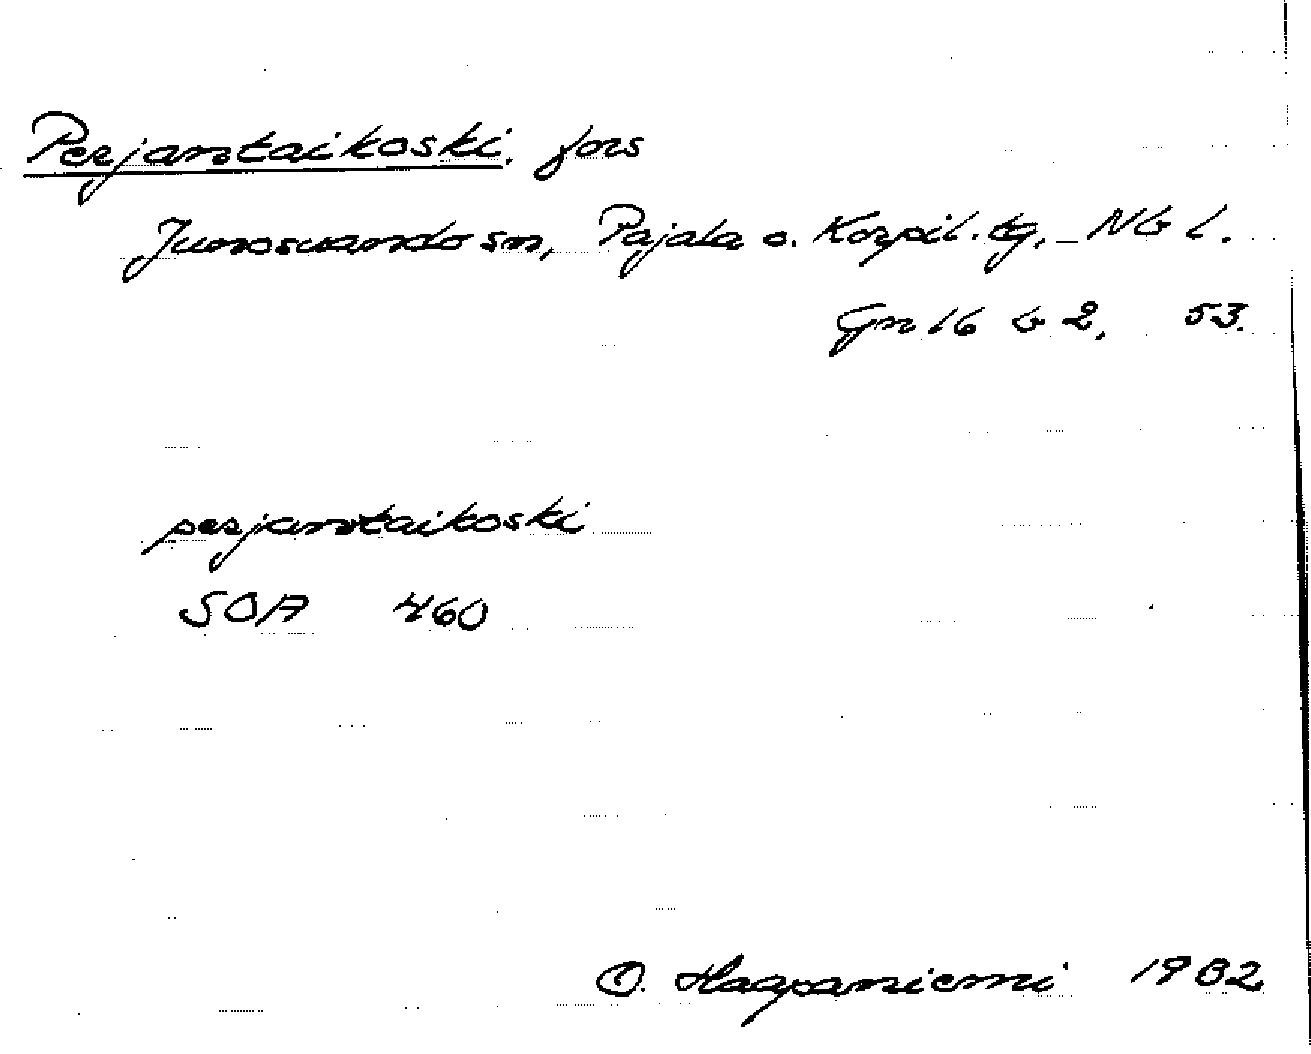 Perjantaikoski, fors
Junosuando sn, Pajala o. Korpil. tg, Nb l.
Gn 16 b 2, 53.
perjantaikoski
SOA 460
O. Haapaniemi 1982